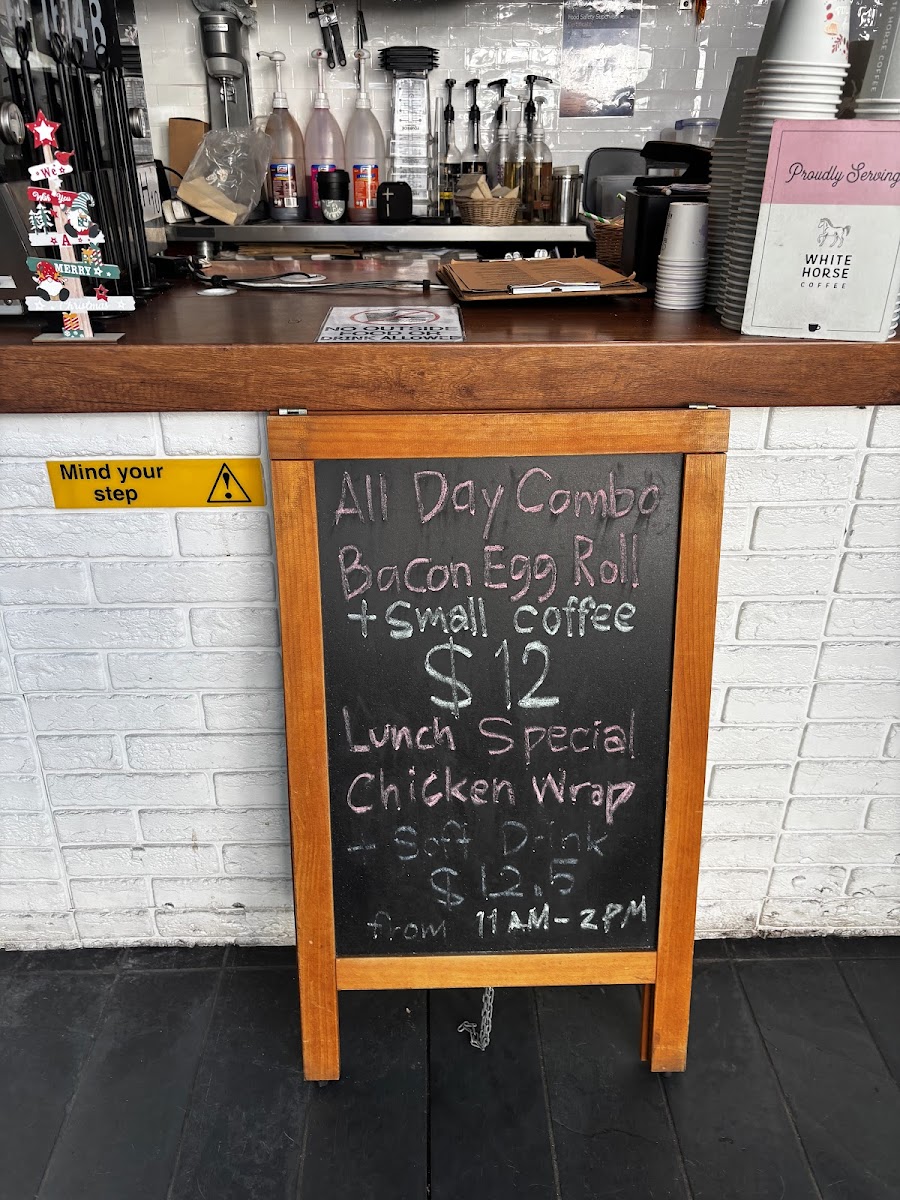 We
Wish You
A
MERRY
Christmas
Food Safety Supervisor
NO OUTSIDE
FOOD OR
DRINK ALLOWED
Proudly Serving
WHITE
HORSE
COFFEE
Mind your
step
All Day Combo
Bacon Egg Roll
+ Small coffee
$12
Lunch Special
Chicken Wrap
+ Soft Drink
$12.5
from 11AM-2PM